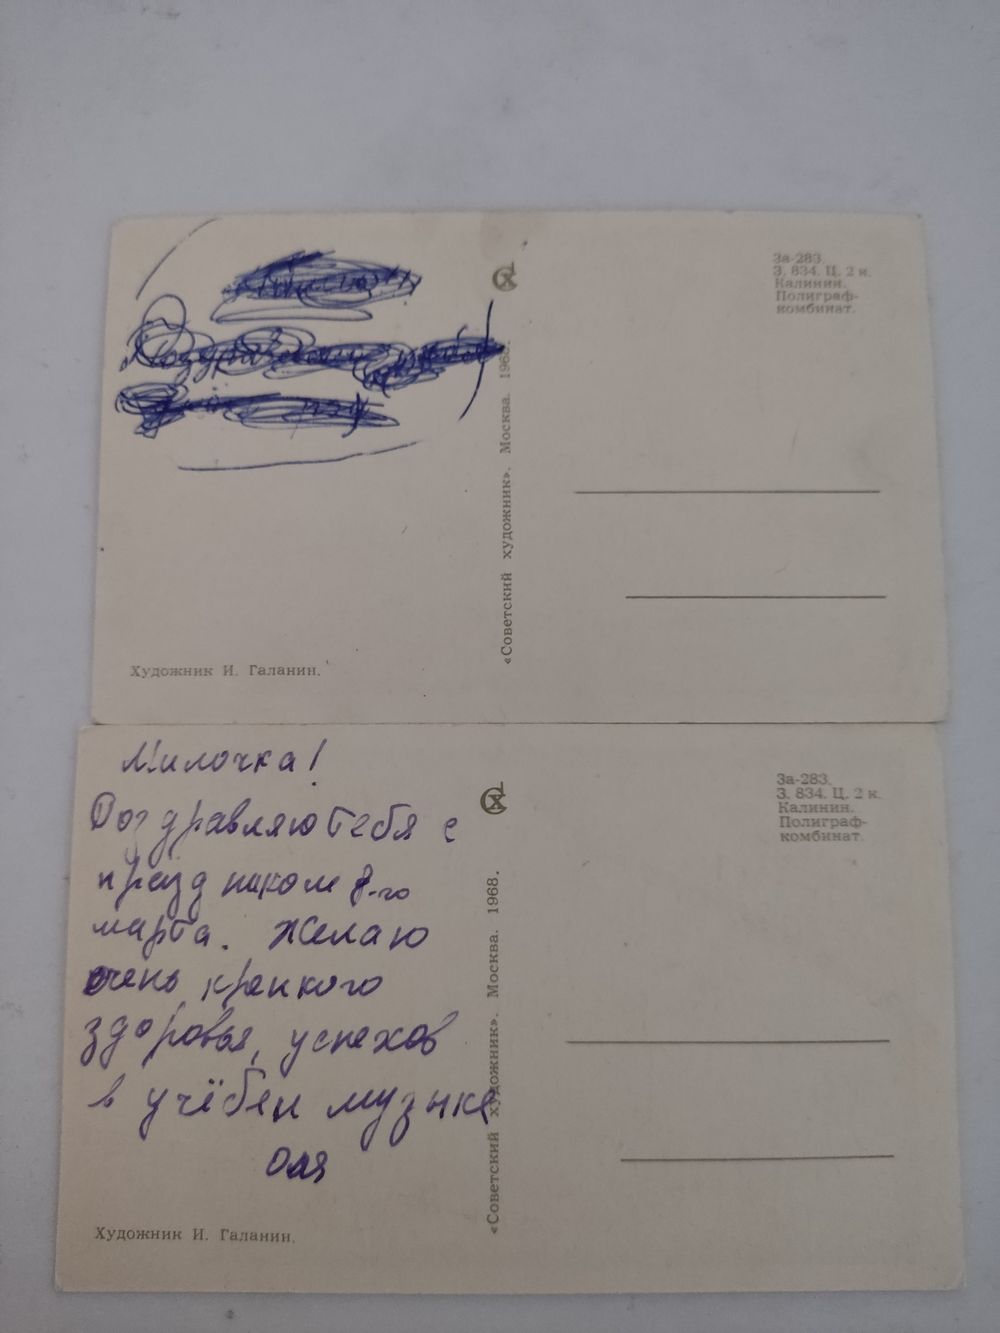 За-283.
З. 834. Ц. 2 к.
Калинин.
Полиграф-
комбинат.
«Советский художник». Москва. 1968.
Художник И. Галанин.
Милочка!
Поздравляю тебя с
праздником 8-го
марта. Желаю
очень крепкого
здоровья, успехов
в учёбе и музыке
Оля
За-283.
З. 834. Ц. 2 к.
Калинин.
Полиграф-
комбинат.
«Советский художник». Москва. 1968.
Художник И. Галанин.